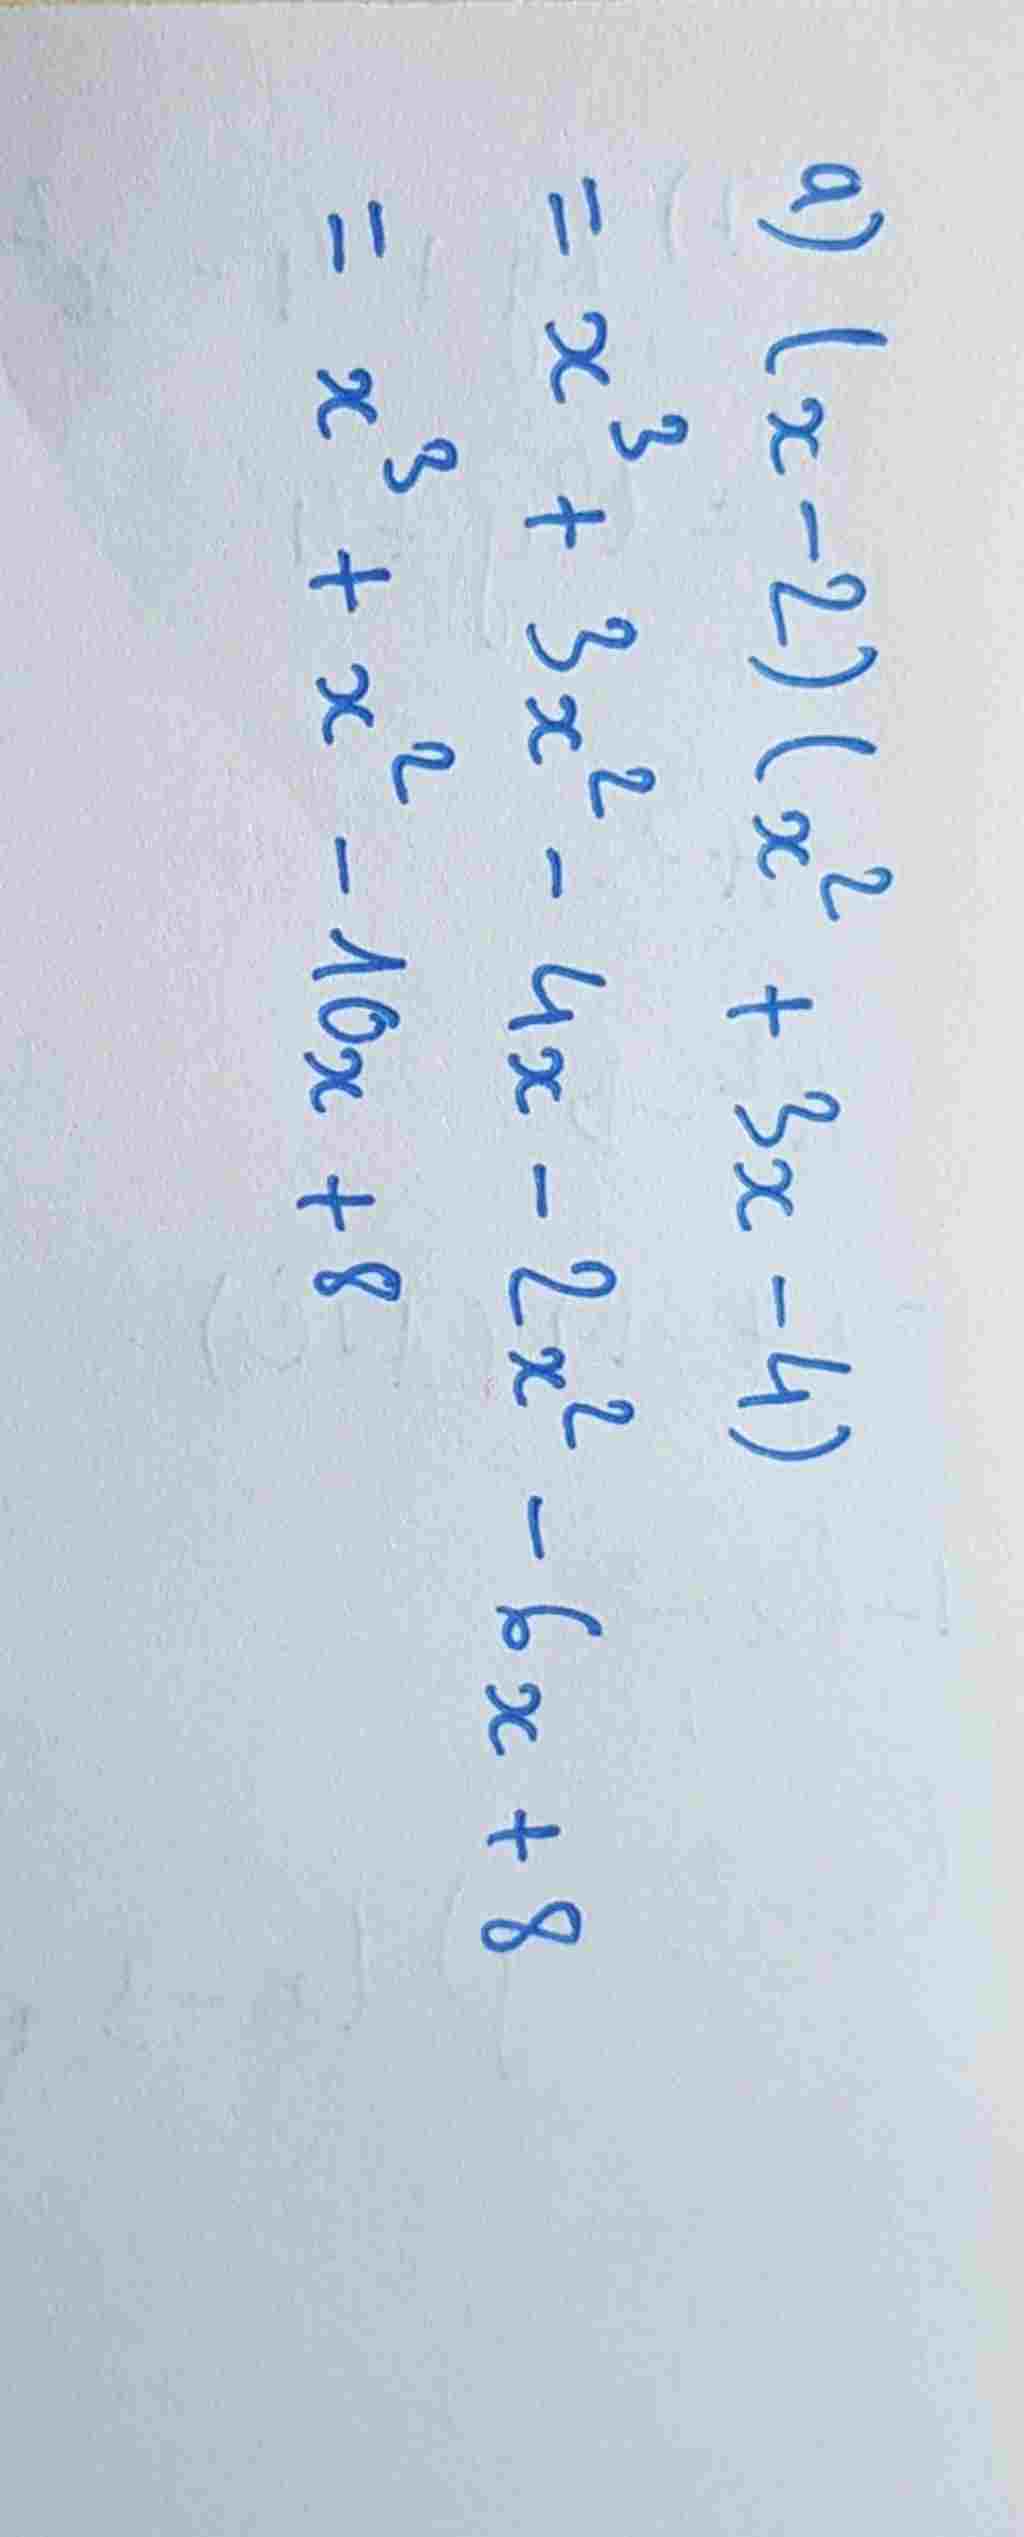 a) (x - 2) (x² + 3x - 4)
= x³ + 3x² - 4x - 2x² - 6x + 8
= x³ + x² - 10x + 8